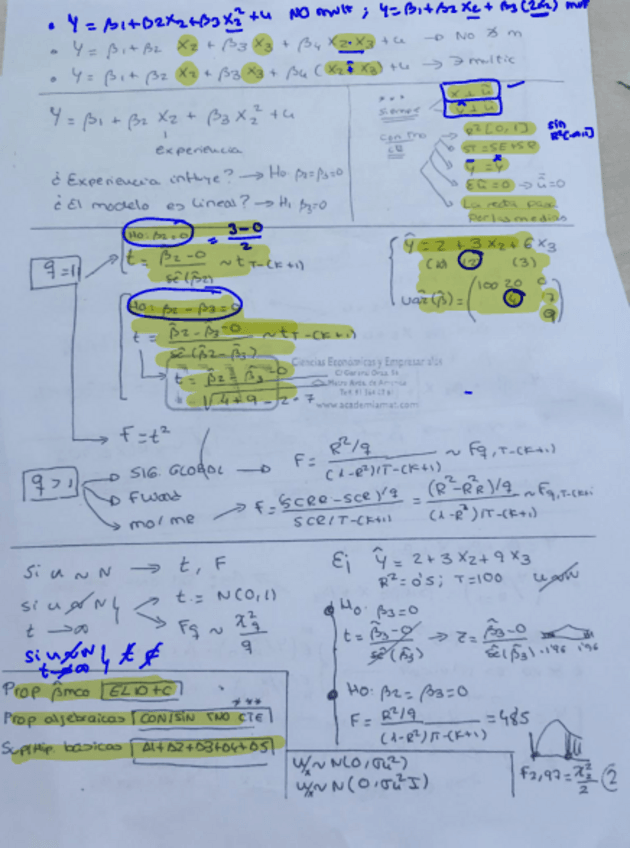 • Y = β1+β2X2+β3X2²+u NO mult ; Y=β1+β2X2+β3(2X2) mult
• Y = β1+β2 X2 + β3 X3 + β4 X2·X3 +u → NO
• Y = β1+β2 X2 + β3 X3 + β4 (X2 + X3) +u → ∃ multic
Y = β1 + β2 X2 + β3 X2² + u
experiencia
¿Experiencia influye? → H0: β2=β3=0
¿El modelo es lineal? → H0 β3=0
siempre
con TNO
R² [0,1]
sin
ST=SE+SR
Σû=0 → ū=0
La recta pasa
por las medias
q=1
H0: β2=0 = 3-0/2
t = β̂2-0 / sê(β̂2) ~ t T-(K+1)
H0: β2 - β3=0
t = β̂2-β̂3-0 / sê(β̂2-β̂3) ~ t T-(K+1)
t = β̂2-β̂3-0 / √4+9-2·7
Ŷ = 2 + 3X2+6X3
(10) (2) (3)
var(β̂) = (100 20 0
4 7
9)
Ciencias Económicas y Empresariales
www.academiamat.com
F = t²
q>1
SIG. GLOBAL → F = R²/q / (1-R²)/T-(K+1) ~ Fq, T-(K+1)
F Wald
mo/me → F = (SCRR-SCR)/q / SCR/T-(K+1) = (R²-R²R)/q / (1-R²)/T-(K+1) ~ Fq, T-(K+1)
Si u ~ N → t, F
si u ≁ N
t → ∞
t ~ N(0,1)
Fq ~ χ²q / q
Si u ≁ N
Ej Ŷ = 2+3X2+9X3
R²=0'5; T=100 u≁N
H0: β3=0
t = β̂3-0 / sê(β̂3) → z = β̂3-0 / sê(β̂3)
H0: β2= β3=0
F = R²/q / (1-R²)/T-(K+1) = 48'5
F2,97 = χ²2 / 2
Prop β̂mco ELIO+C
Prop algebraicas CON/SIN TNO CTE
Supthip. básicas A1+A2+A3+A4+A5
u/x ~ N(0,σu²)
u/x ~ N(0,σu²I)